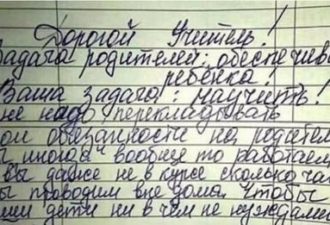 Дорогой Учитель!
Задача родителей: обеспечива
ребёнка!
Ваша задача: научить!
не надо перекладывать
ои обязанности на родителе
ы иногда вообще то работаем
вы даже не в курсе сколько ча
ы проводим вне дома, чтобы
ши дети ни в чём не нуждали